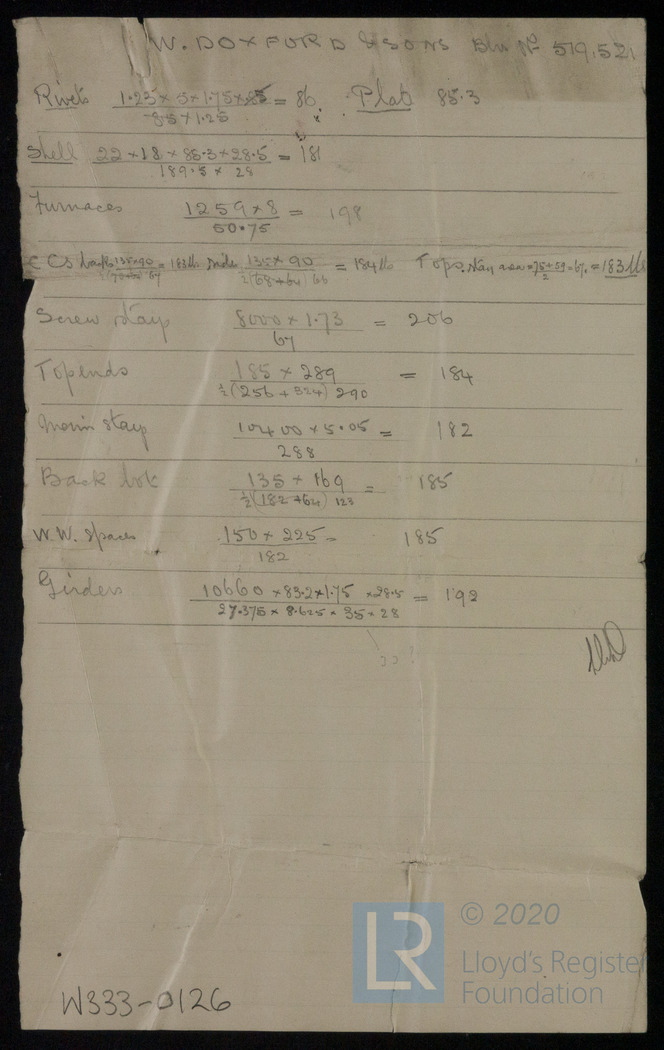 W. DOXFORD & SONS Blr Nº 519.521
Rivets 1.23 × 5 × 1.75 × 85 / 8.5 × 1.25 = 86. Plate 85.3
Shell 22 × 18 × 85.3 × 28.5 / 189.5 × 28 = 181
Furnaces 1259 × 8 / 50.75 = 198
CCs backs 135 × 90 / 67 = 183 lb side 135 × 90 / ½(68+64) 66 = 184 lb Tops. stay area = 75+59 / 2 = 67. = 183 lb
Screw stays 8000 × 1.73 / 67 = 206
Top ends 185 × 289 / ½(256 + 324) 290 = 184
Main stays 10400 × 5.05 / 288 = 182
Back 135 × 169 / ½(182+64) 123 = 185
W.W. Spaces 150 × 225 / 182 = 185
Girders 10660 × 83.2 × 1.75 × 28.5 / 27.375 × 8.625 × 35 × 28 = 192
??
W333-0126
LR
© 2020
Lloyd's Register
Foundation